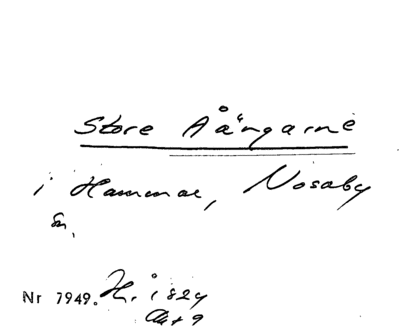 Store Aängarne
i Hammar, Nosaby
sn.
Nr 7949. H. i 1824
Akt 9